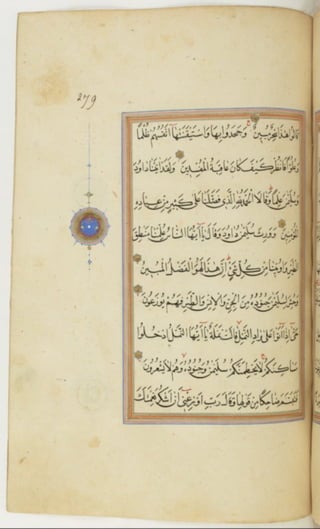 279
قَالُوا هٰذَا سِحْرٌ مُبِينٌ وَجَحَدُوا بِهَا وَاسْتَيْقَنَتْهَا اَنْفُسُهُمْ ظُلْمًا
وَعُلُوًّا فَانْظُرْ كَيْفَ كَانَ عَاقِبَةُ الْمُفْسِدِينَ وَلَقَدْ اٰتَيْنَا دَاوُدَ
وَسُلَيْمٰنَ عِلْمًا وَقَالَا الْحَمْدُ لِلّٰهِ الَّذِي فَضَّلَنَا عَلٰى كَثِيرٍ مِنْ عِبَادِهِ
الْمُؤْمِنِينَ وَوَرِثَ سُلَيْمٰنُ دَاوُدَ وَقَالَ يَا اَيُّهَا النَّاسُ عُلِّمْنَا مَنْطِقَ
الطَّيْرِ وَاُوتِينَا مِنْ كُلِّ شَيْءٍ اِنَّ هٰذَا لَهُوَ الْفَضْلُ الْمُبِينُ
وَحُشِرَ لِسُلَيْمٰنَ جُنُودُهُ مِنَ الْجِنِّ وَالْاِنْسِ وَالطَّيْرِ فَهُمْ يُوزَعُونَ
حَتّٰى اِذَا اَتَوْا عَلٰى وَادِ النَّمْلِ قَالَتْ نَمْلَةٌ يَا اَيُّهَا النَّمْلُ ادْخُلُوا
مَسَاكِنَكُمْ لَا يَحْطِمَنَّكُمْ سُلَيْمٰنُ وَجُنُودُهُ وَهُمْ لَا يَشْعُرُونَ
فَتَبَسَّمَ ضَاحِكًا مِنْ قَوْلِهَا وَقَالَ رَبِّ اَوْزِعْنِي اَنْ اَشْكُرَ نِعْمَتَكَ